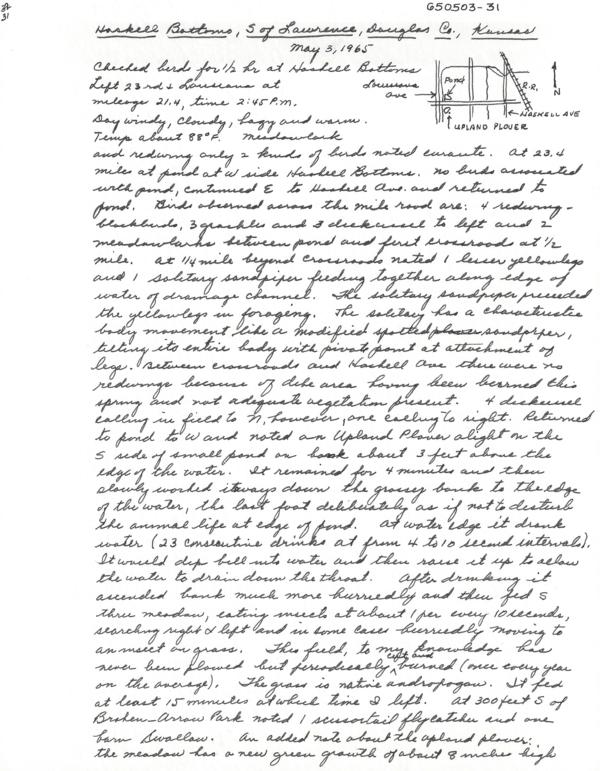 650503-31
31
Haskell Bottoms, S of Lawrence, Douglas Co., Kansas
May 3, 1965
Checked bird for 1/2 hr at Haskell Bottoms
Left 23rd & Louisiana at
mileage 21.4, time 2:45 P.M.
Day windy, cloudy, hazy and warm.
Temp about 88°F. Meadowlark
Louisiana Ave
Pond
R.R.
N
HASKELL AVE
UPLAND PLOVER
and redwing only 2 kinds of birds noted enroute. At 23.4
miles at pond at W side Haskell Bottoms. No birds associated
with pond, continued E to Haskell Ave. and returned to
pond. Birds observed across the mile road are: 4 redwing-
blackbirds, 3 grackles and 3 dickcissel to left and 2
meadowlarks between pond and first crossroads at 1/2
mile. At 1/4 mile beyond crossroads noted 1 lesser yellowlegs
and 1 solitary sandpiper feeding together along edge of
water of drainage channel. The solitary sandpiper preceded
the yellowlegs in foraging. The solitary has a characteristic
body movement like a modified spotted plover sandpiper,
tilting its entire body with pivot point at attachment of
legs. Between crossroads and Haskell Ave there were no
redwings because of dike area having been burned this
spring and not adequate vegetation present. 4 dickcissel
calling in field to N, however, one calling to right. Returned
to pond to W and noted an Upland Plover alight on the
S side of small pond on bank about 3 feet above the
edge of the water. It remained for 4 minutes and then
slowly worked its way down the grassy bank to the edge
of the water, the last foot deliberately as if not to disturb
the animal life at edge of pond. At water edge it drank
water (23 consecutive drinks at from 4 to 10 second intervals).
It would dip bill into water and then raise it up to allow
the water to drain down the throat. After drinking it
ascended bank much more hurriedly and then fed S
thru meadow, eating insects at about 1 per every 10 seconds,
searching right & left and in some cases hurriedly moving to
an insect on grass. This field, to my knowledge has
never been plowed but periodically cut and burned (once every year
on the average). The grass is native andropogon. It fed
at least 15 minutes at which time I left. At 300 feet S of
Broken-Arrow Park noted 1 scissortail flycatcher and one
barn swallow. An added note about the upland plover:
the meadow has a new green growth of about 8 inches high